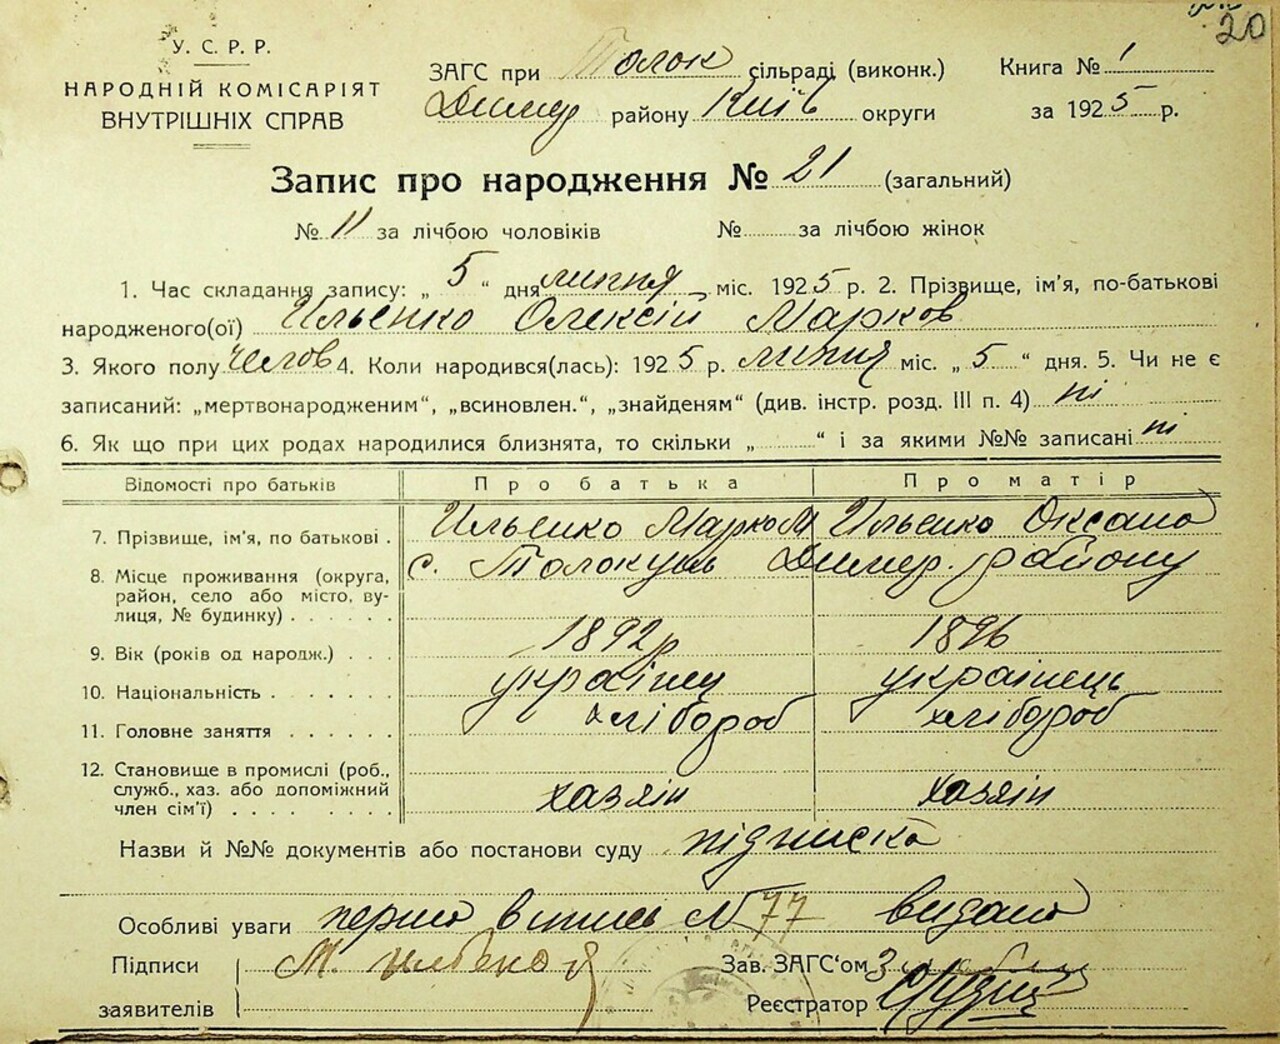 20
У. С. Р. Р.
НАРОДНІЙ КОМІСАРІЯТ
ВНУТРІШНІХ СПРАВ
ЗАГС при Толок сільраді (виконк.)
Димер району Київ округи
Книга № 1
за 1925 р.
Запис про народження № 21 (загальний)
№ 11 за лічбою чоловіків № за лічбою жінок
1. Час складання запису: „ 5 “ дня липня міс. 1925 р. 2. Прізвище, ім'я, по-батькові
народженого(ої) Ильенко Олексій Марков
3. Якого полу челов 4. Коли народився(лась): 1925 р. липня міс. „ 5 “ дня. 5. Чи не є
записаний: „мертвонародженим“, „всиновлен.“, „знайденям“ (див. інстр. розд. III п. 4) ні
6. Як що при цих родах народилися близнята, то скільки „ “ і за якими №№ записані ні
Відомості про батьків Про батька Про матір
7. Прізвище, ім'я, по батькові . Ильенко Марко М Ильенко Оксана
8. Місце проживання (округа, с. Толокунь Димер. району
район, село або місто, ву-
лиця, № будинку) . . . . . .
9. Вік (років од народж.) . . . 1892р 1896
10. Національність . . . . . . . українец українець
11. Головне заняття . . . . . . хлібороб хлібороб
12. Становище в промислі (роб.,
служб., хаз. або допоміжний хазяін хазяін
член сім'ї) . . . . . . . . .
Назви й №№ документів або постанови суду підписка
Особливі уваги перша випись № 77 видана
Підписи М. Ильенко
заявителів
Зав. ЗАГС'ом
Реєстратор